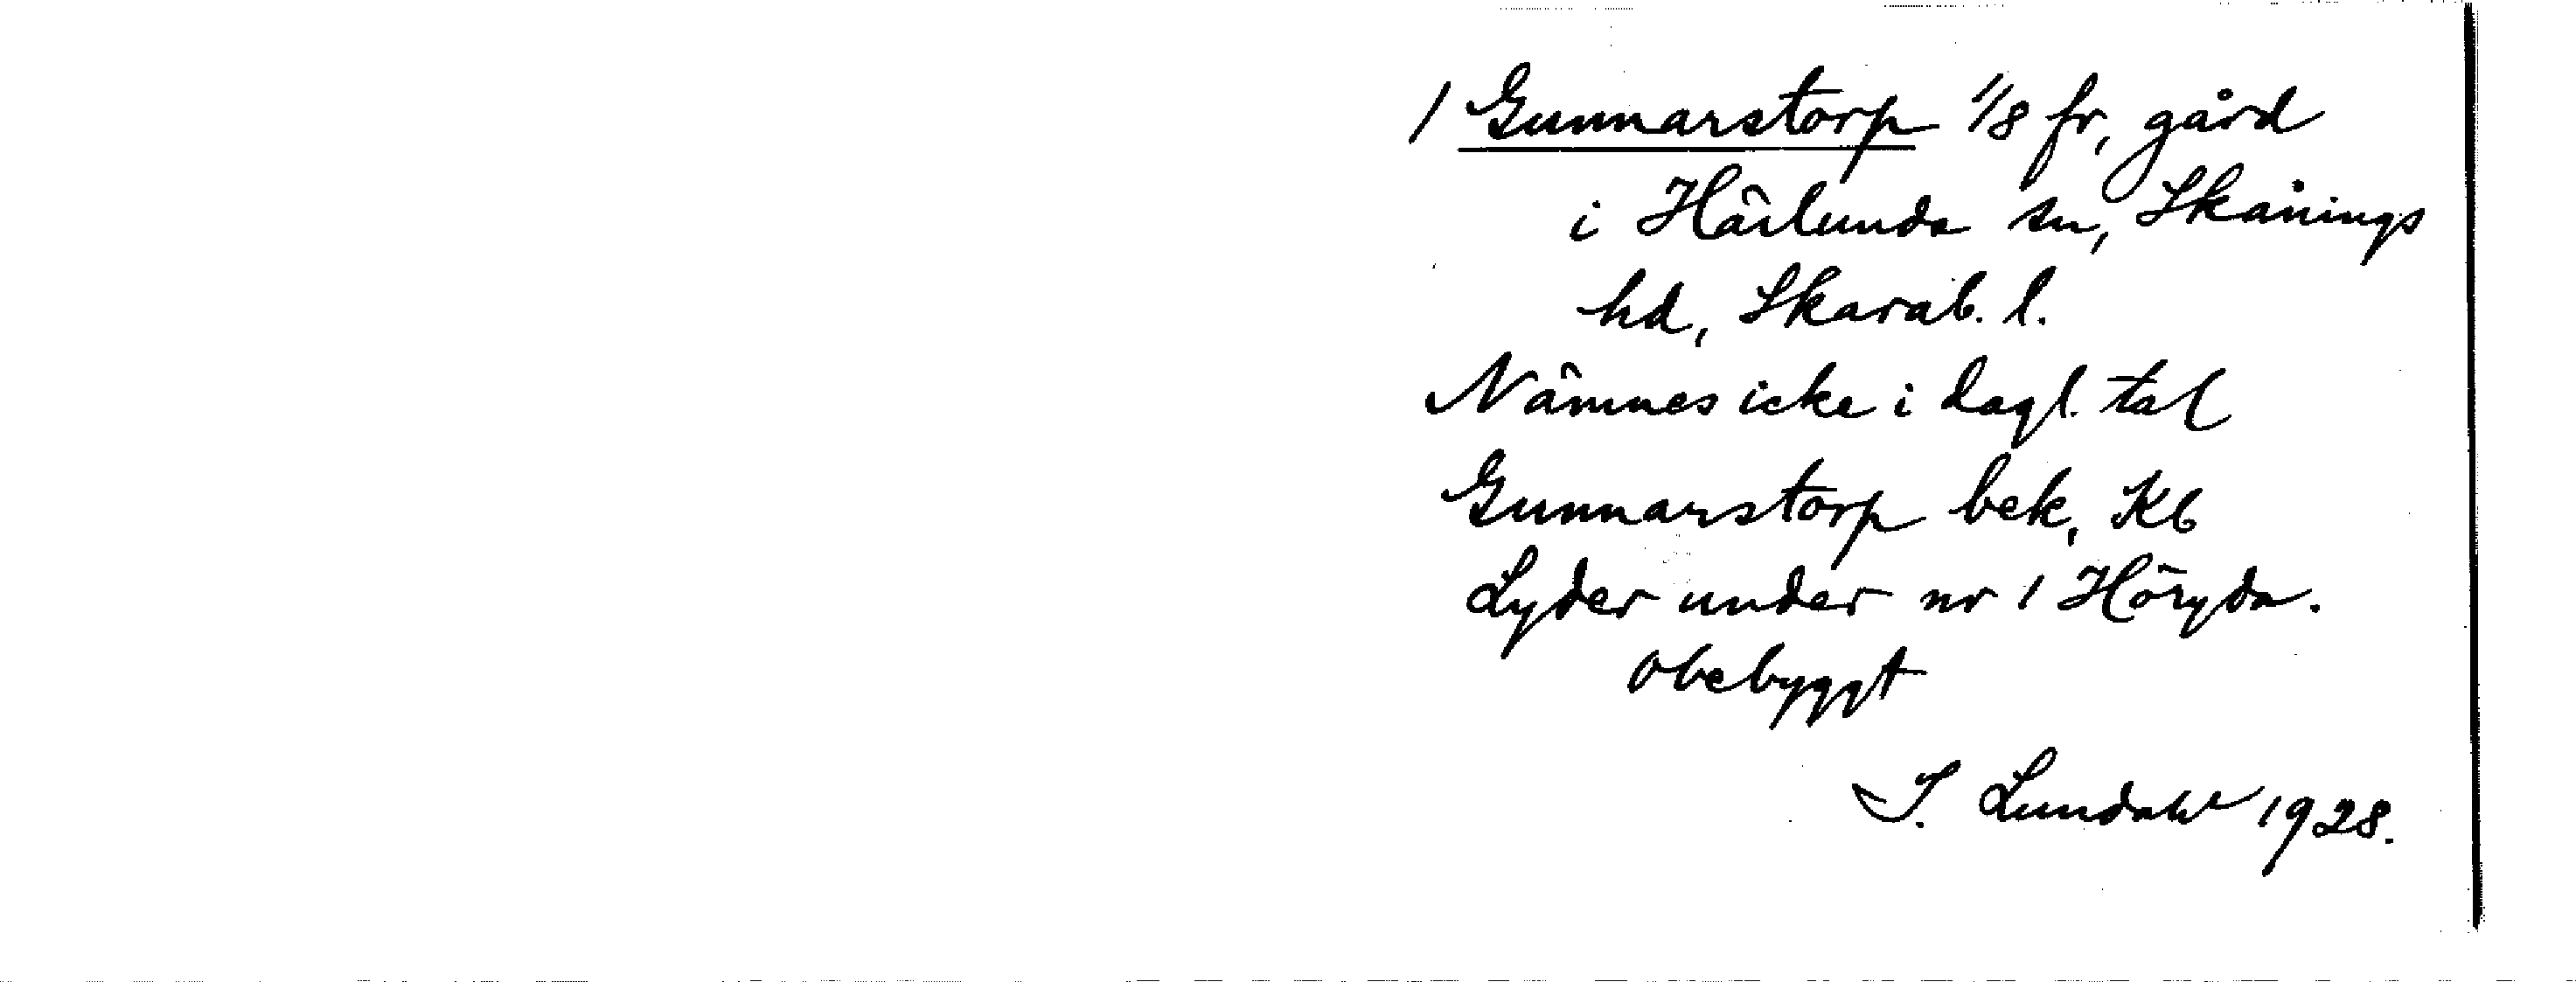 1 Gunnarstorp 1/8 fr, gård
i Härlunda sn, Skånings
hd, Skarab. l.
Nämnes icke i dagl. tal
Gunnarstorp bek, Kb
Lyder under nr 1 Höryda.
obebyggt
I. Lundahl 1928.